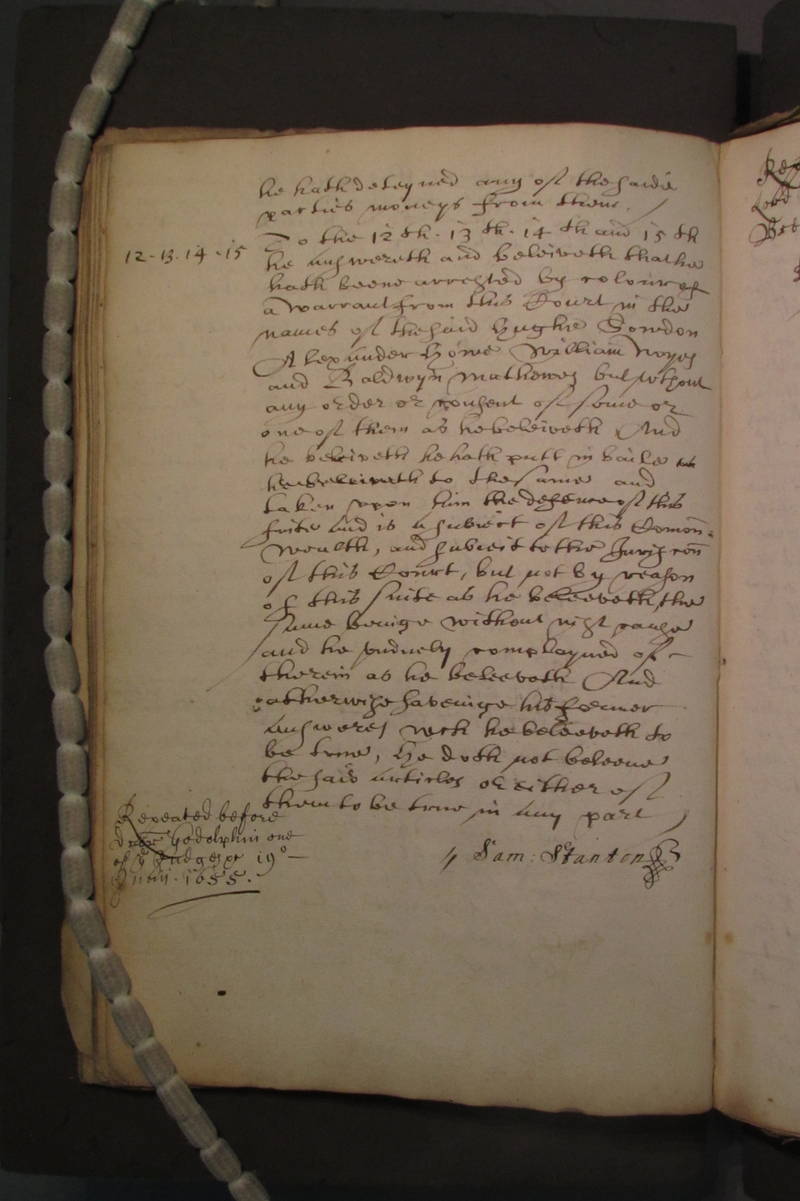 he hath deteyned any of the saide
parties moneys from them.
12. 13. 14. 15
To the 12th. 13th. 14th and 15th
he answereth and beleiveth that he
hath beene arrested by colour of
a warrant from this Court in the
names of the said Hughe Sowdon
Alexander Howe William Noyes
and Baldwyn Mathewes but wthout
any order or consent of some or
one of them as he beleiveth And
he beleiveth he hath putt in baile
he beleiveth to the same and
taken upon him the defence of this
suite and is a subiect of this Comon
wealth, and subiect to the Jurisdcon
of this Court, but not by reason
of this suite as he beleeveth, the
same beinge without iust cause
and he unduely complayned of
therein as he beleeveth And
otherwise saveinge his former
answeres wch he beleeveth to
be true, He doth not beleeve
the said articles or either of
them to be true in any part
Repeated before
Godolphin one
of ye Judges &c 19o
Junij. 1655.
Sam: Stanton